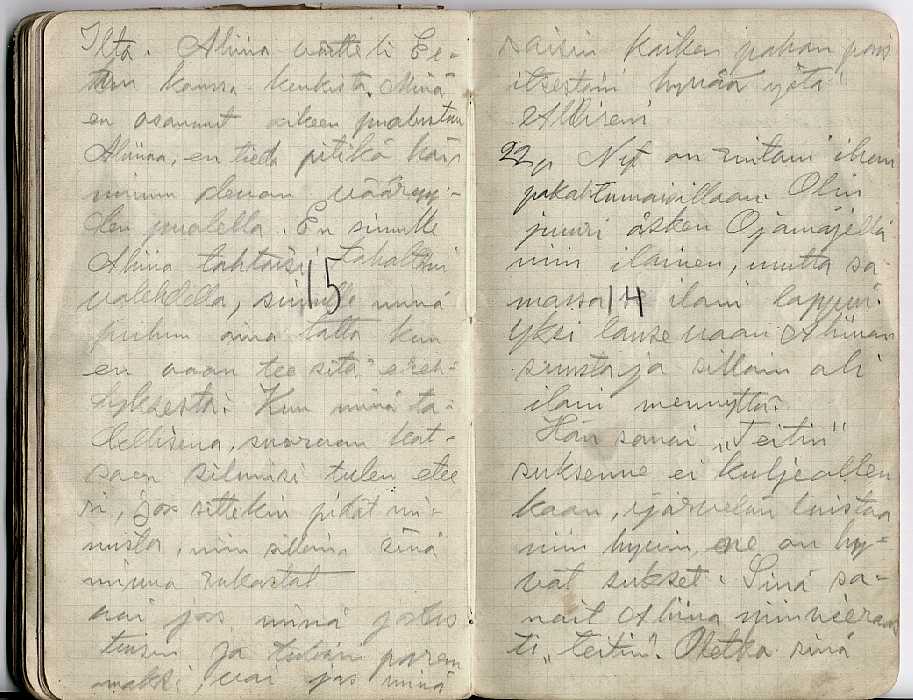 Ilta. Alina väitteli Ee-
kanssa kenkistä. Minä
en osannut oikeen puolustaa
Aliina, en tiedä pitikö hän
minun olevan vääryy-
den puolella. En sinulle
Aliina tahtoisi tahallani
valehdella, sinulle minä
puhun aina totta kun
en vaan tee sitä ereh-
dyksestä. Kun minä to-
dellisena, suoraan kat-
soen silmiisi tulen etee
si, jos sittekin pidät mi-
nusta, niin silloin sinä
minua rakastat
voi jos minä jaksa
ja tulisin parem
maksi, voi jos minä
15
saisin kaiken pahan pois
itsestäni hyvää yötä
Aliiseni
22 p Nyt on rintani ihan
pakahtumaisillaan. Olin
juuri äsken Ojamäjellä
niin iloinen, mutta sa
massa iloni loppui.
Yksi lause vaan Aliinan
suusta ja silloin oli
iloni mennyttä.
Hän sanoi „Teitin"
suksenne ei kulje allen
kaan, luistaa
niin hyvin, ne on hy-
vät sukset. Sinä sa-
noit Aliina
ti „teitin". Oletko sinä
14